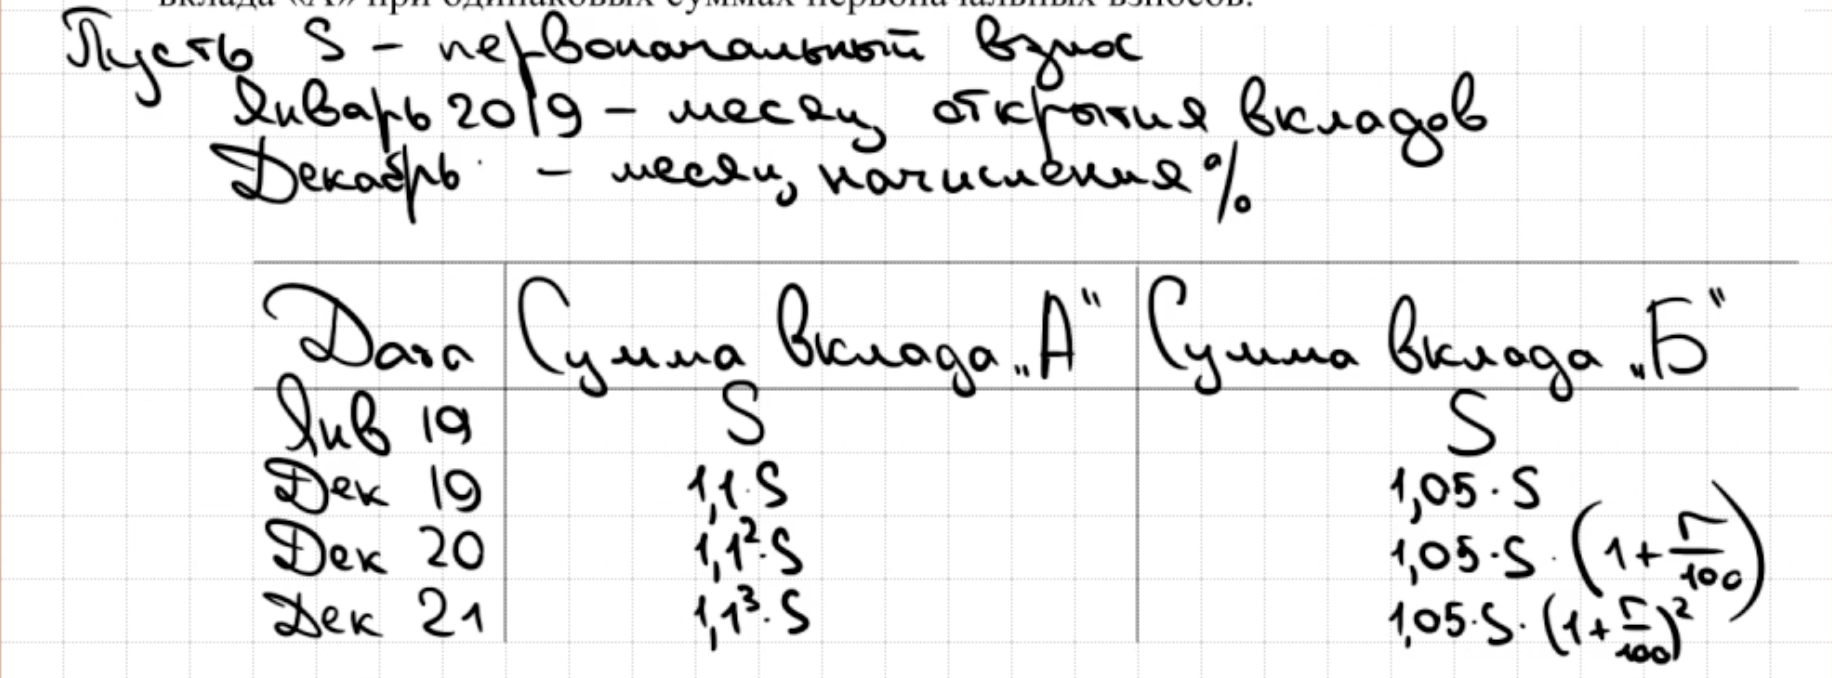 вклада «А» при одинаковых суммах первоначальных взносов.
Пусть S – первоначальный взнос
Январь 2019 – месяц открытия вкладов
Декабрь – месяц начисления %
Дата Сумма вклада „А“ Сумма вклада „Б“
Янв 19 S S
Дек 19 1,1·S 1,05·S
Дек 20 1,1²·S 1,05·S·(1+r/100)
Дек 21 1,1³·S 1,05·S·(1+r/100)²